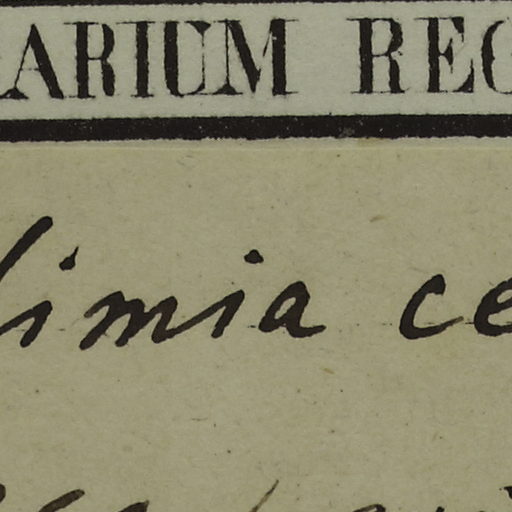 ARIUM REG
limia ce